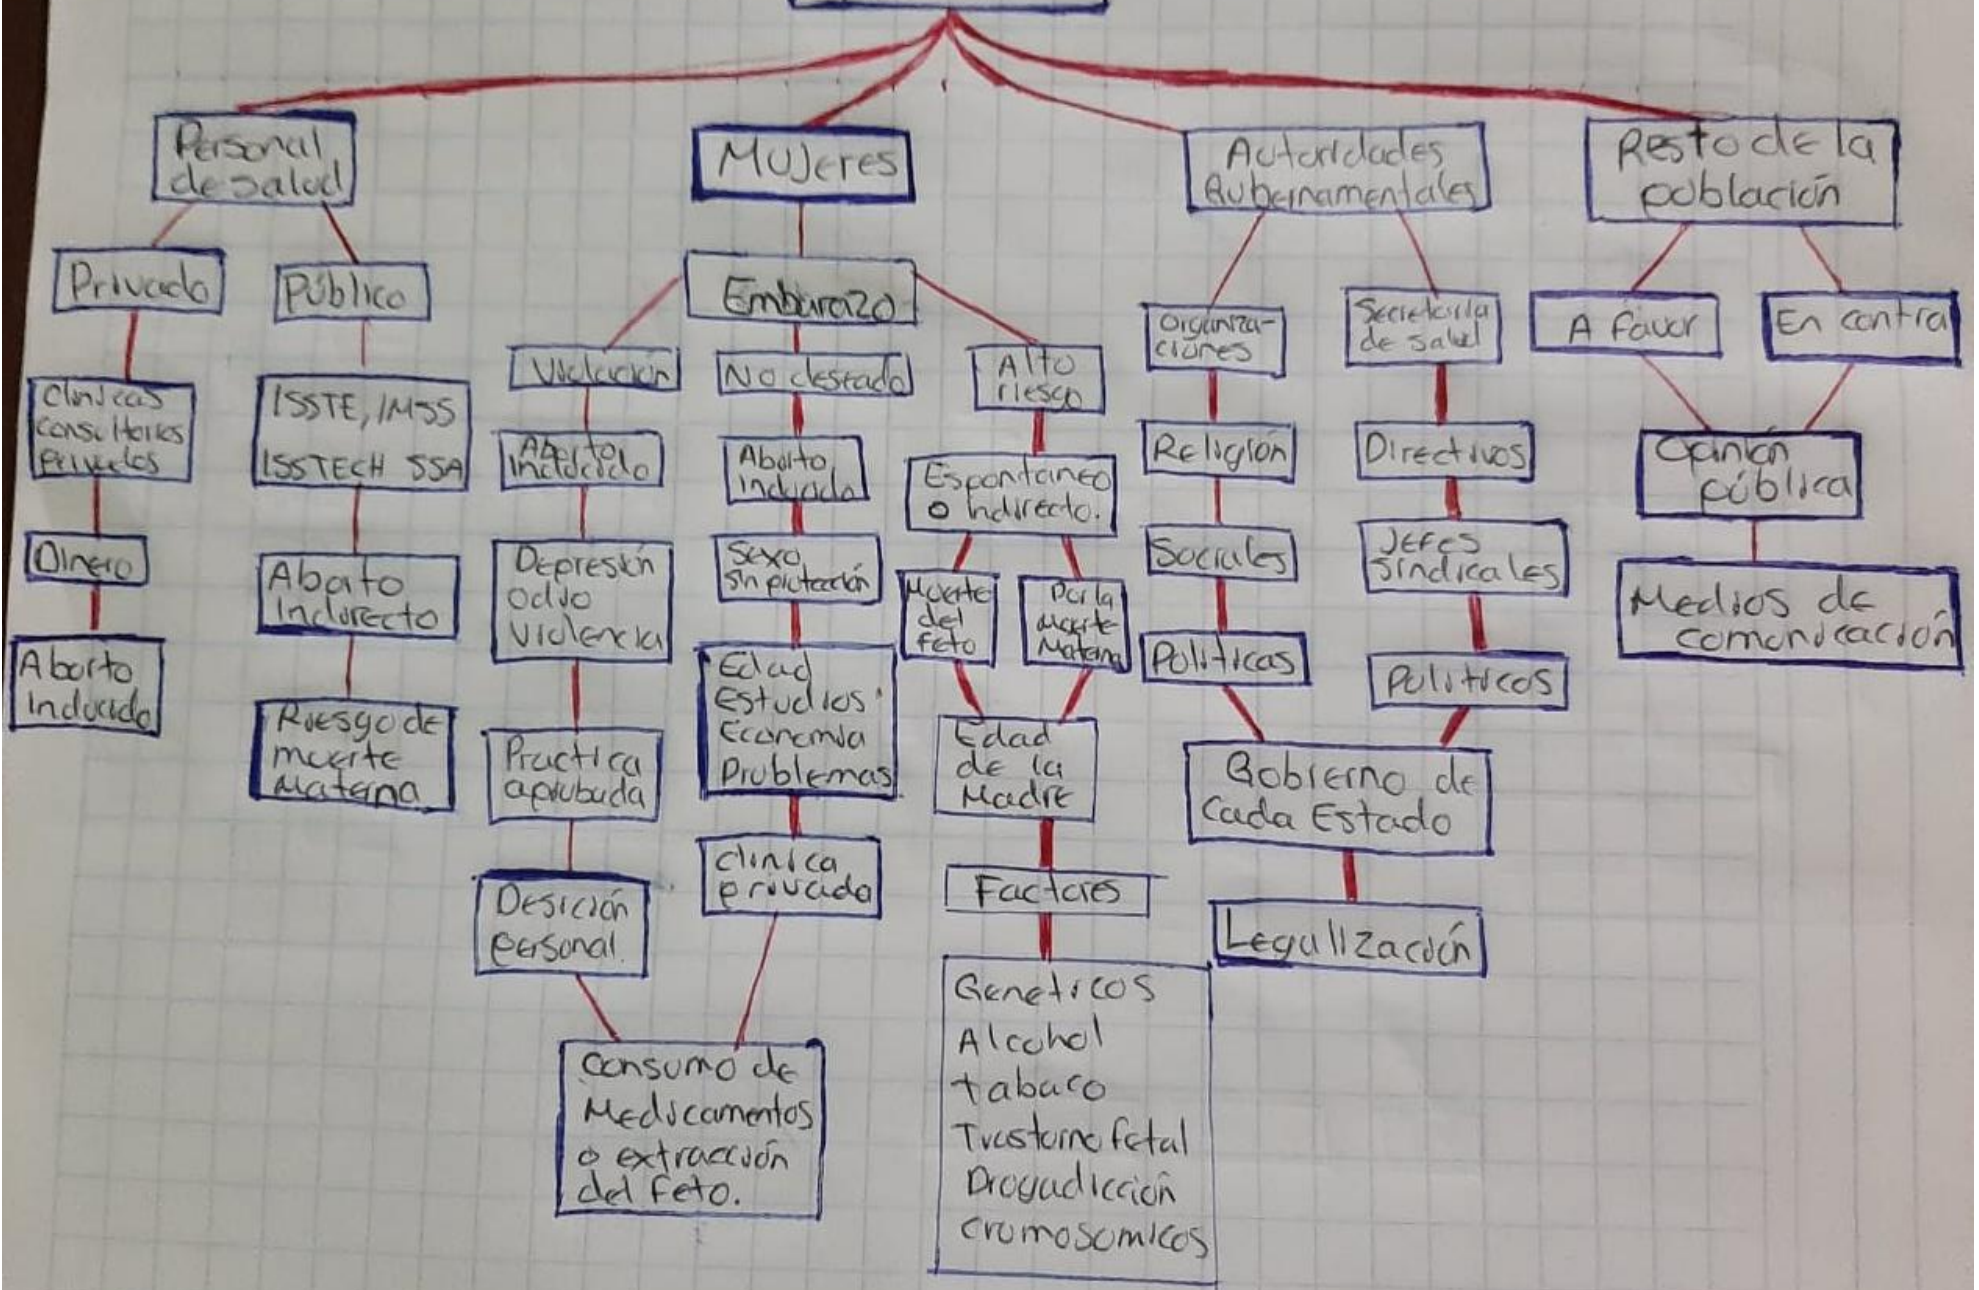 Personal
de salud
Privado
Público
Clinicas
consultorios
privados
ISSTE, IMSS
ISSTECH SSA
Dinero
Aborto
Indirecto
Aborto
Inducido
Riesgo de
muerte
Materna
Mujeres
Embarazo
Violación
Aborto
Inducido
Depresión
odio
Violencia
Practica
aprobada
Desición
personal.
No deseado
Aborto
Inducido
Sexo
sin protección
Edad
Estudios
Economia
Problemas
clinica
privada
Consumo de
Medicamentos
o extracción
del feto.
Alto
riesgo
Espontaneo
o Indirecto.
Muerte
del
feto
Por la
muerte
Materna
Edad
de la
Madre
Factores
Geneticos
Alcohol
tabaco
Trastorno fetal
Drogadicción
cromosomicos
Autoridades
Gubernamentales
Organiza-
ciones
Religión
Sociales
Politicas
Secretaria
de salud
Directivos
Jefes
sindicales
Politicos
Gobierno de
Cada Estado
Legalización
Resto de la
población
A favor
En contra
Opinión
pública
Medios de
comunicación